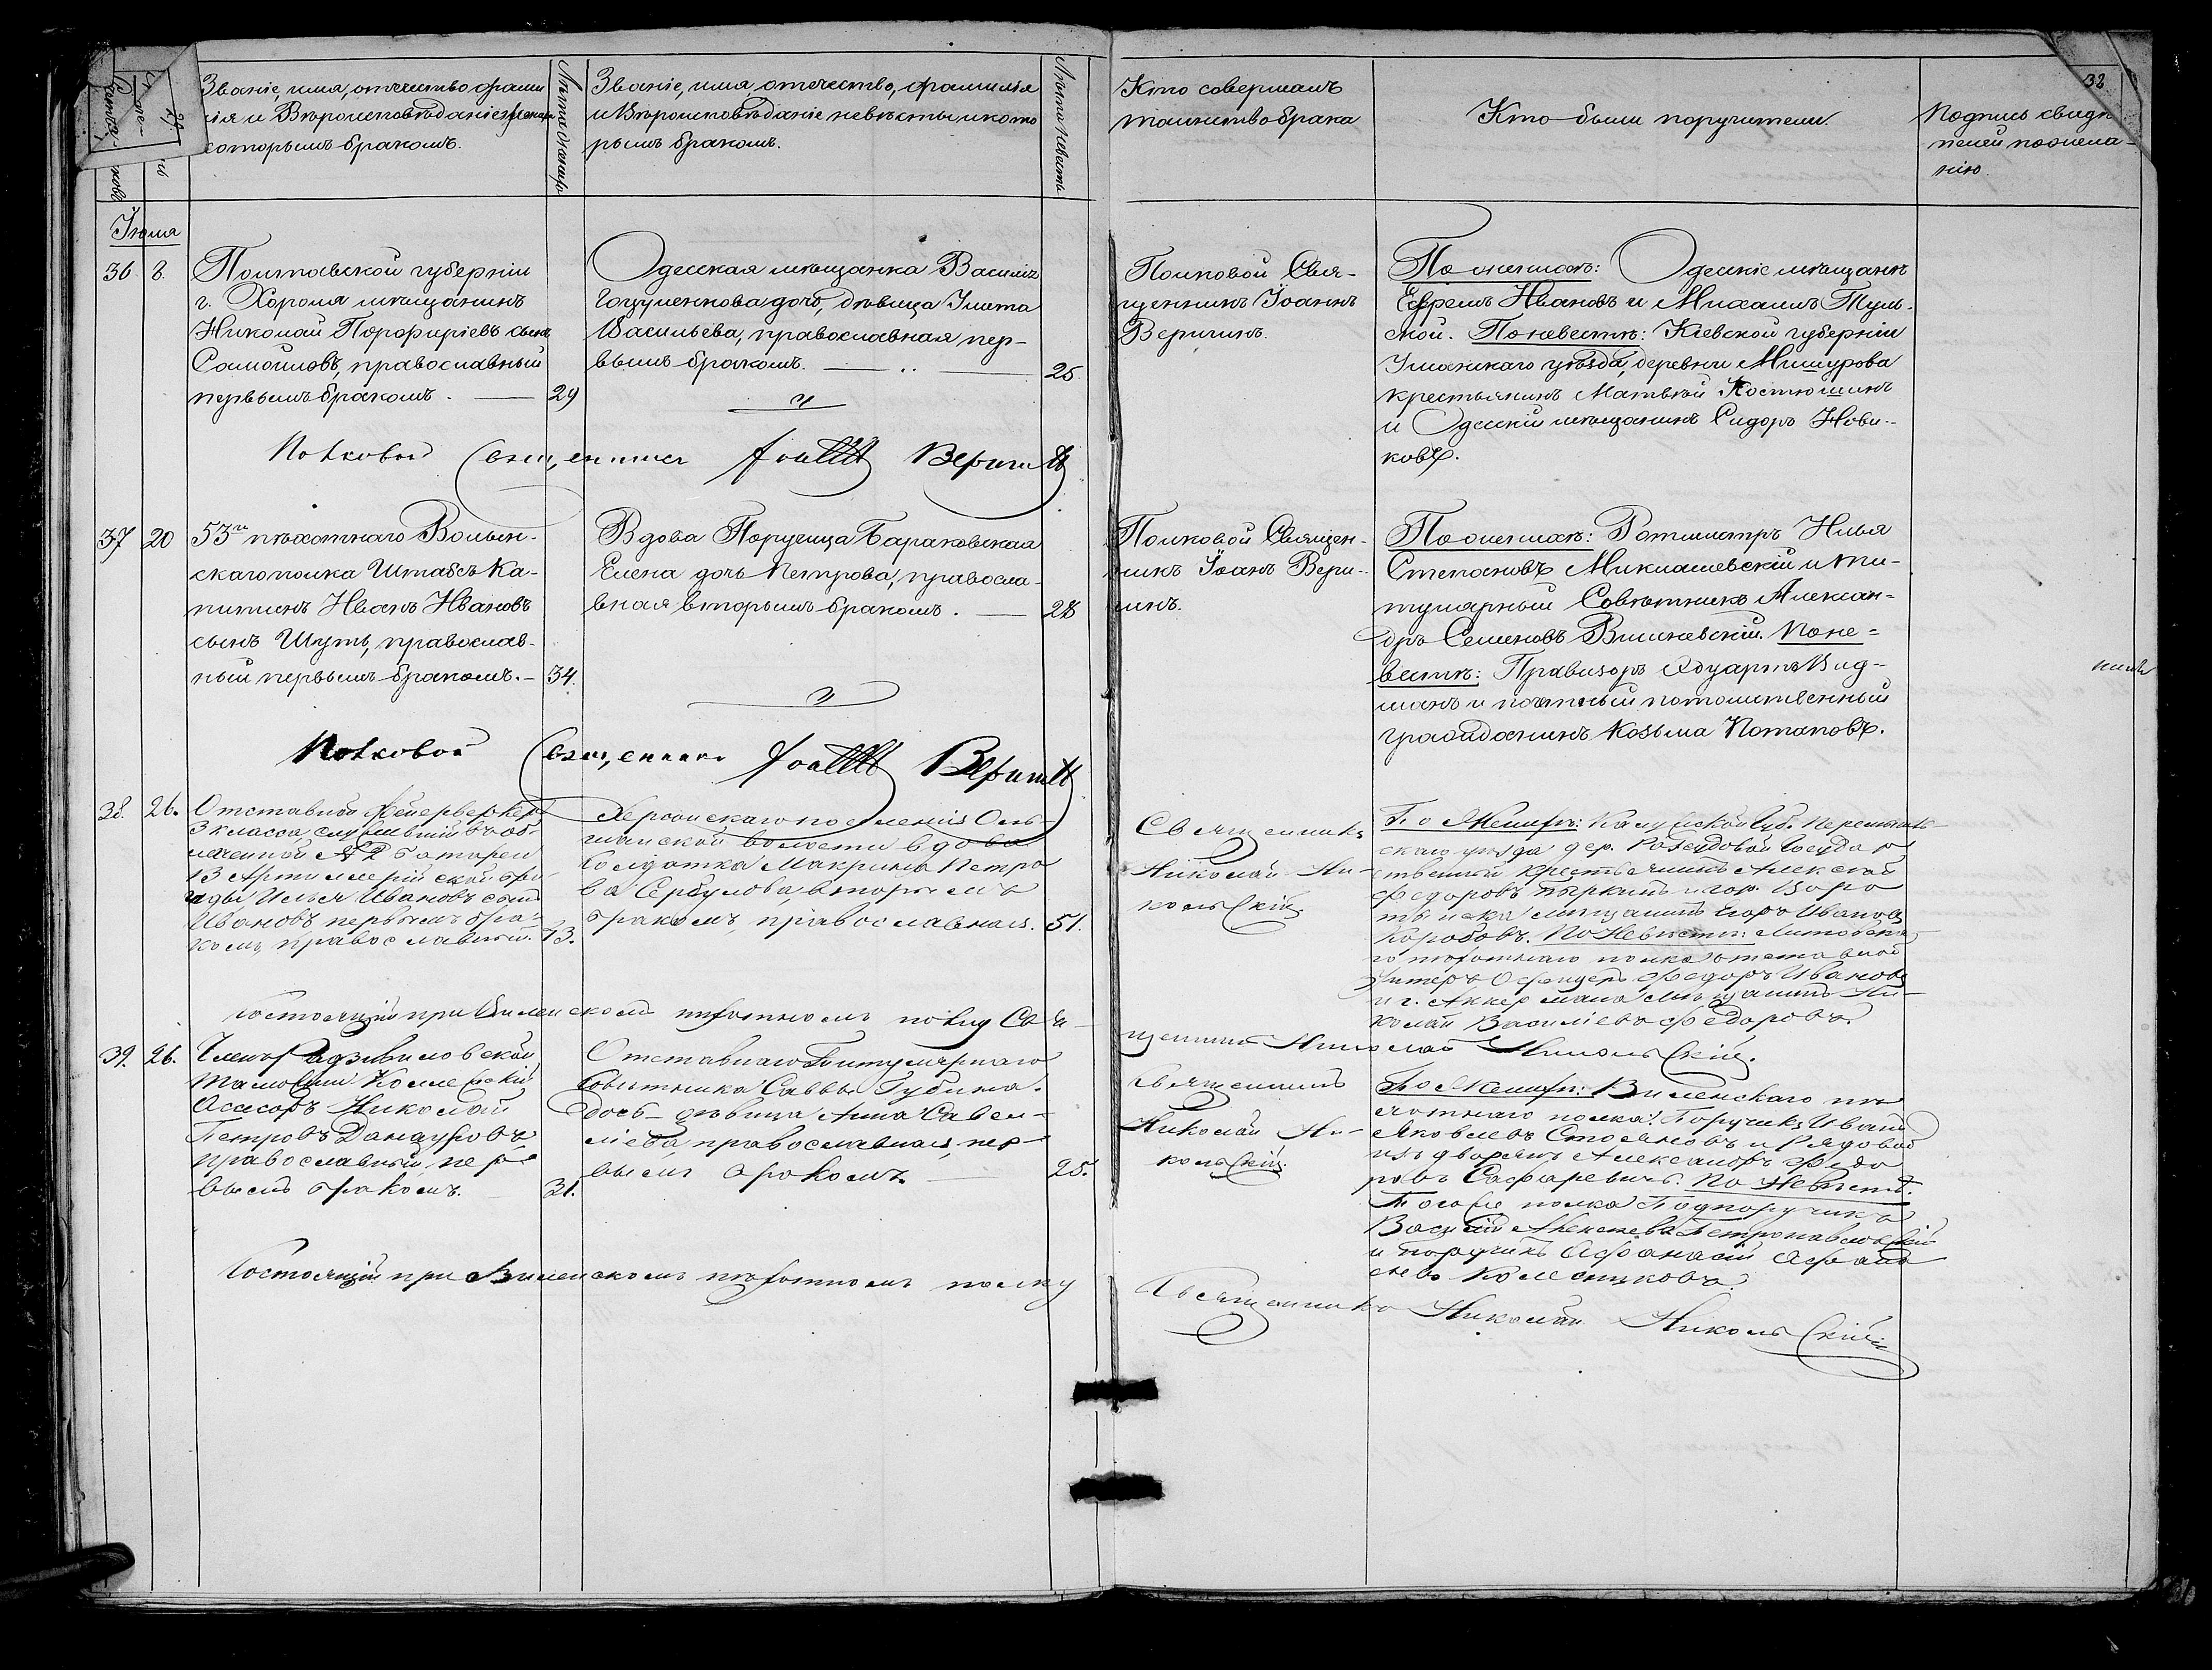 32
Званіе, имя, отчество фами
лія и Вѣроисповѣданіе жениха
которымъ бракомъ.
Лѣта жениха
Званіе, имя, отечество, фамилія
и Вѣроисповѣданіе невѣсты и кото
рымъ бракомъ.
Лѣта невѣсты
Кто совершалъ
таинство брака
Кто были поручители.
Подпись свидѣ
телей по жела-
нію
Іюля
36 8.
Полтавской губерніи
г. Хорола мѣщанинъ
Николай Порфиріевъ сынъ
Самойловъ, православный
первымъ бракомъ. 29
Одесская мѣщанка Василія
дочь, дѣвица Улита
Васильева, православная пер-
вымъ бракомъ. 25
Полковой Свя-
щенникъ Іоаннъ
Веригинъ.
По женихѣ: Одесскіе мѣщане
Ефремъ Ивановъ и Михаилъ Туль-
ской. По невѣстѣ: Кіевской губерніи
Уманскаго уѣзда, деревни Мишурова
крестьянинъ Матвѣй Костюшинъ
и Одесскій мѣщанинъ Сидоръ Нови-
ковъ.
Полковой Священникъ Іоаннъ Веригинъ
37 20
53го пѣхотнаго Волын-
скаго полка Штабсъ Ка-
питанъ Иванъ Ивановъ
сынъ Шутъ, православ-
ный первымъ бракомъ. 34.
Вдова Поручица Бараковская
Елена дочь Петрова, правосла-
вная вторымъ бракомъ. 28
Полковой Священ-
никъ Іоанъ Вери-
гинъ.
По женихѣ: Ротмистръ Илья
Степановъ Миклашевскій и Ти-
тулярный Совѣтникъ Алексан-
дръ Семеновъ Вишневскій. По не-
вѣстѣ: Провизоръ Эдуартъ Вид-
манъ и почтный потомственный
гражданинъ Козьма Потаповъ.
Полковой Священникъ Іоаннъ Веригинъ
38. 26.
Отставной Фейерверкеръ
3 класса, служившій въ об-
легченной № 2 батареи
13 Артиллерійской бри-
гады Илья Ивановъ сынъ
Ивановъ первымъ бра-
комъ, православный. 73.
Херсонскаго поселенія Оль-
шанской волости вдова
Солдатка Макрина Петро
ва Сербулова, вторымъ
бракомъ, православная. 51.
Священникъ
Николай Ни-
кольскій.
По Женихѣ: Калужской Губ. Перемышль
скаго уѣзда дер. Государ
ственный крестьянинъ Алексѣй
Федоровъ и гор.
мѣщанинъ Егоръ Ивановъ
Коробовъ. По Невѣстѣ:
го пѣхотнаго полка отставной
Унтеръ Офицеръ Федоръ Ивановъ
и г. Аккермана мѣщанинъ Ни-
колай Василіевъ Федоровъ.
Состоящій при Виленскомъ пѣхотномъ полку Свя-
щенникъ Николай Никольскій.
39. 26.
Членъ Радзивиловской
Таможни Колежскій
Асесоръ Николай
Петровъ Дандуровъ
православный, пер-
вымъ бракомъ. 31.
Отставнаго Титулярнаго
Совѣтника Саввы Губина
дочь дѣвица Анна Савел-
ліева, православная, пер-
вымъ бракомъ. 25.
Священникъ
Николай Ни-
кольскій.
По Женихѣ: Виленскаго пѣ
хотнаго полка: Поручикъ Иванъ
Яковлевъ Стояновъ и Рядовой
изъ дворянъ Александръ Федо
ровъ Сафаревичъ. По Невѣстѣ:
Того же полка Подпоручикъ
Василій Алексѣевъ Петропавловскій
и поручикъ Афанасій Афана
сіевъ Колесниковъ.
Состоящій при Виленскомъ пѣхотномъ полку
Священникъ Николай Никольскій